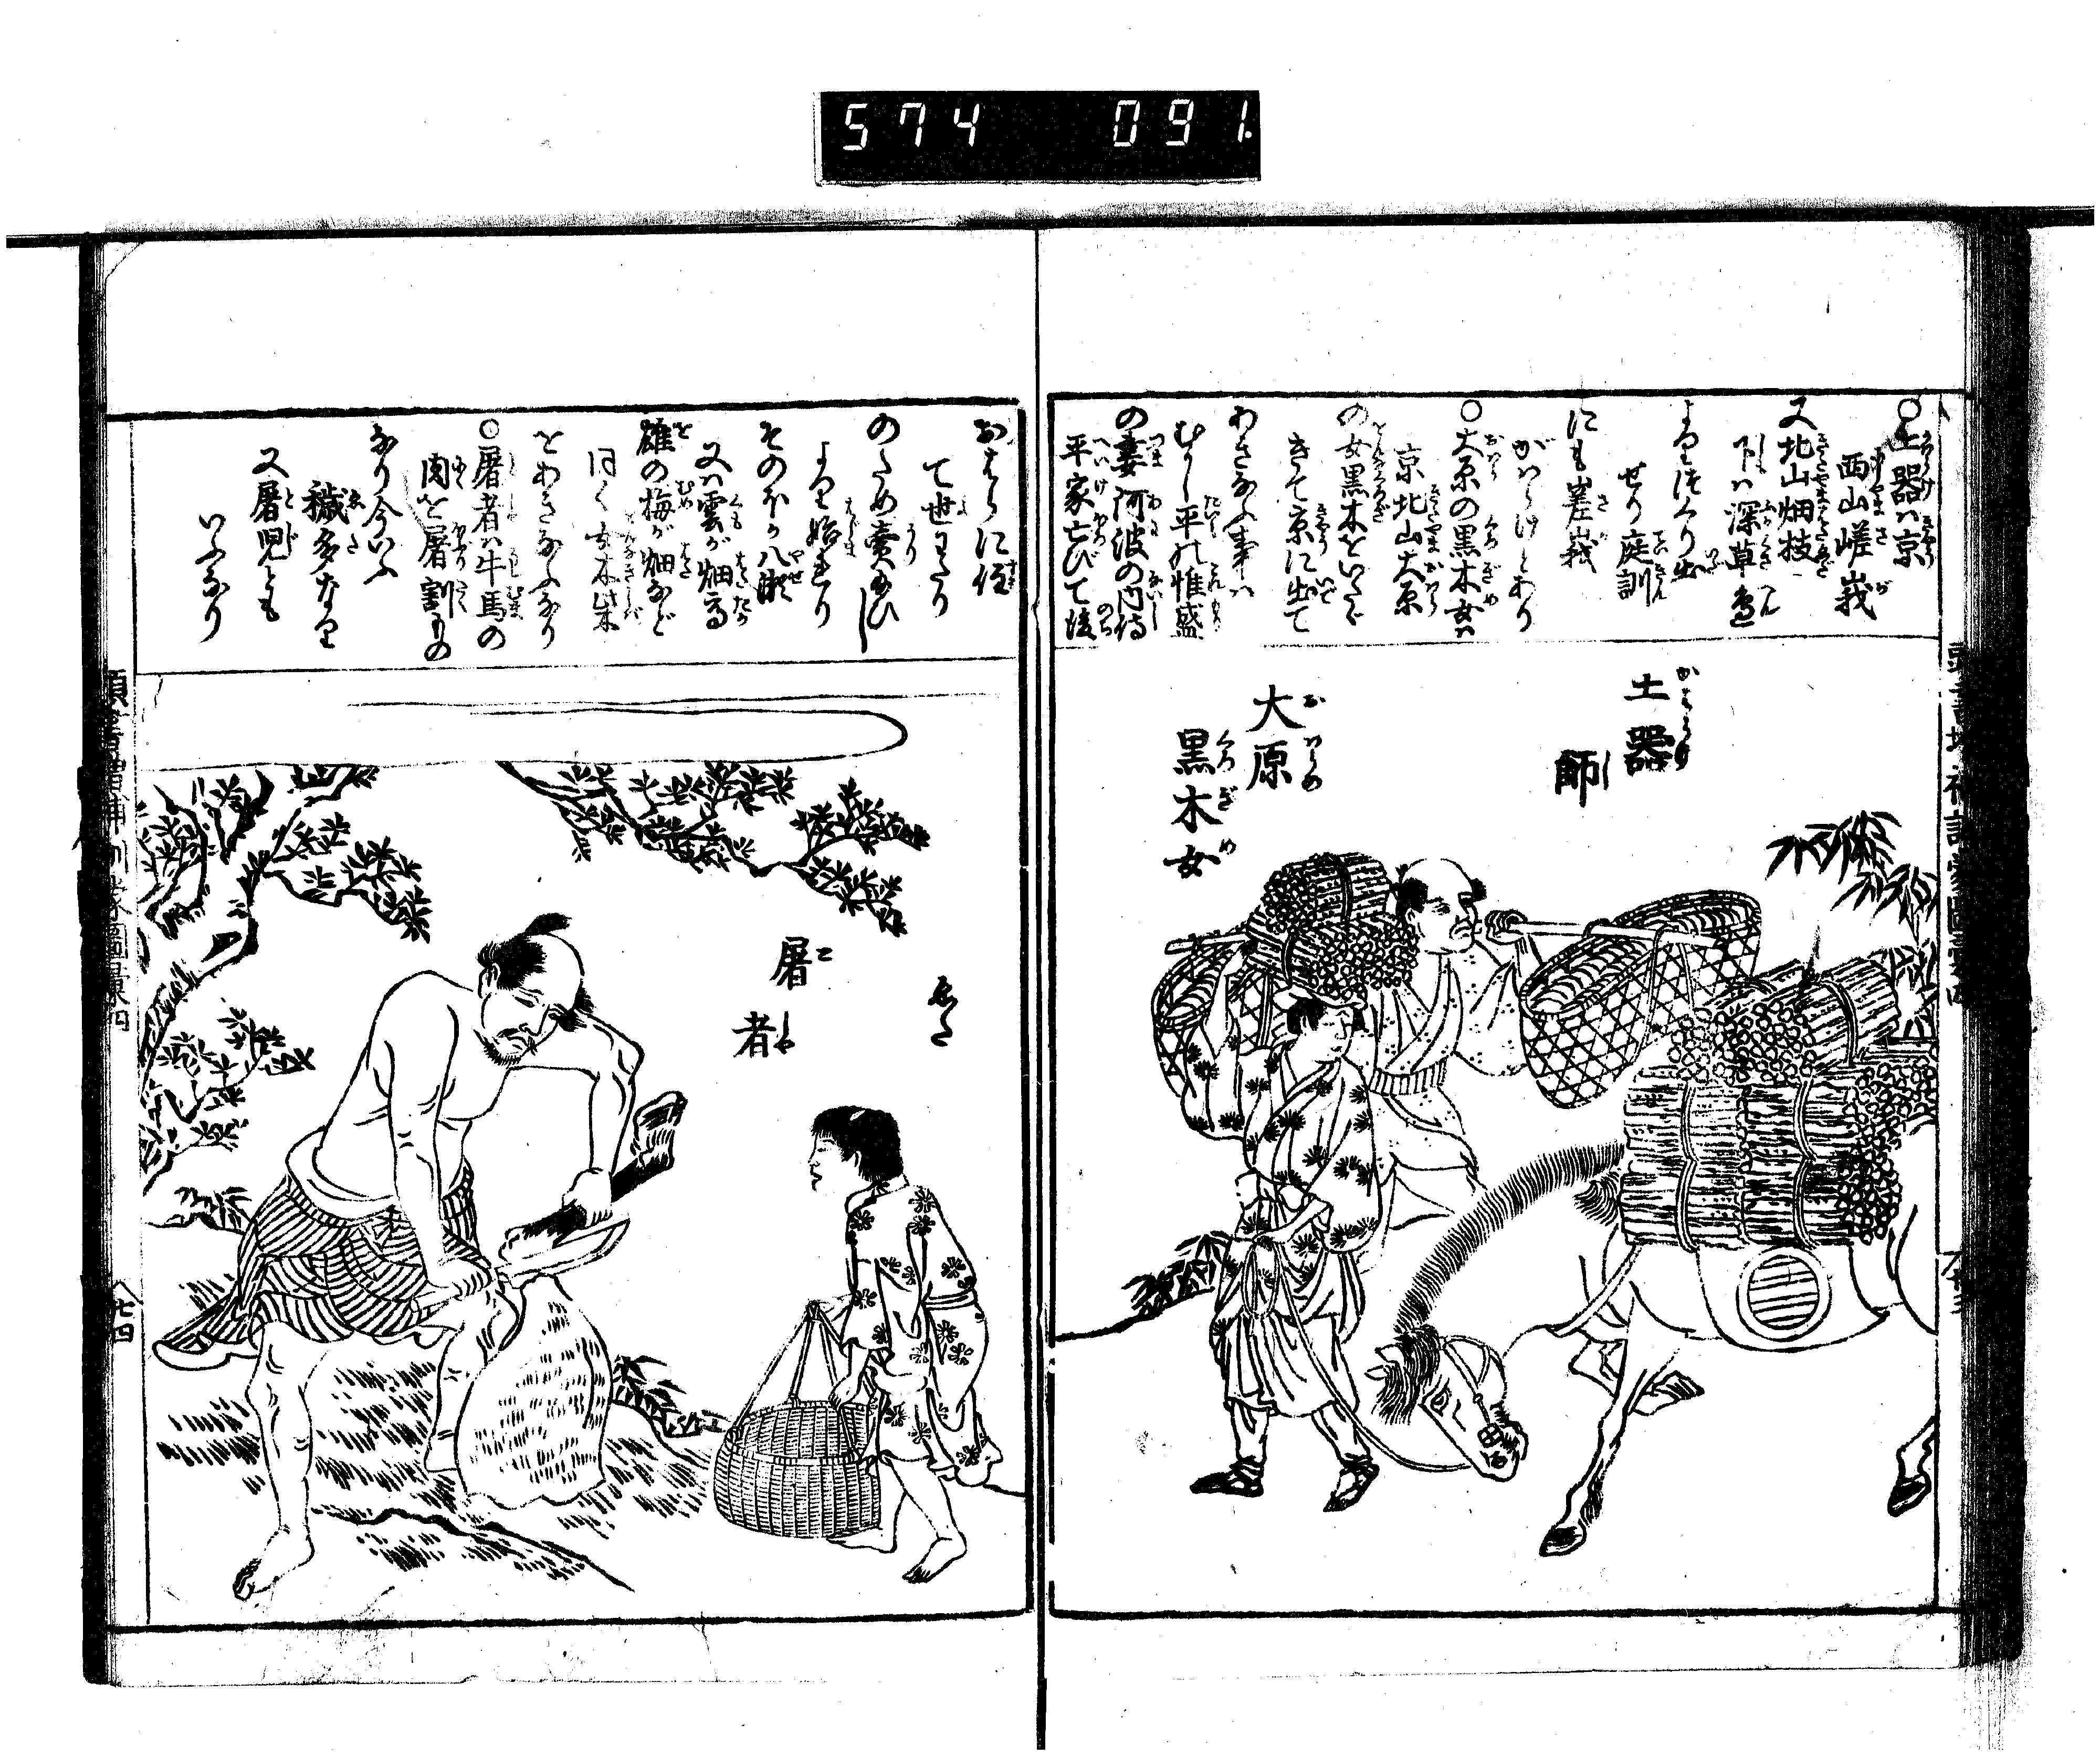 574 091.
○土器ハ京
西山嵯峩
又北山畑枝
下ハ深草邉
よりつくり出
せり庭訓
にも嵯峩
がハらけとあり
○大原の黒木女ハ
京北山大原
の女黒木をいたゞ
きて京に出て
あきなふ事ハ
むかし平の惟盛
の妻阿波の内侍
平家亡びて後
土器師
かはらけし
大原
おはら
黒木女
くろぎめ
おはらに住
て世わたり
のため賣給ひし
より始れり
そのほか八瀬
又ハ雲が畑高
雄の梅が畑など
同く女木柴
をあきなふなり
○屠者ハ牛馬の
肉を屠割もの
なり今いふ
穢多なり
又屠児とも
いふなり
屠者
としや
ゑた
頭書増補訓蒙圖彙四
七四